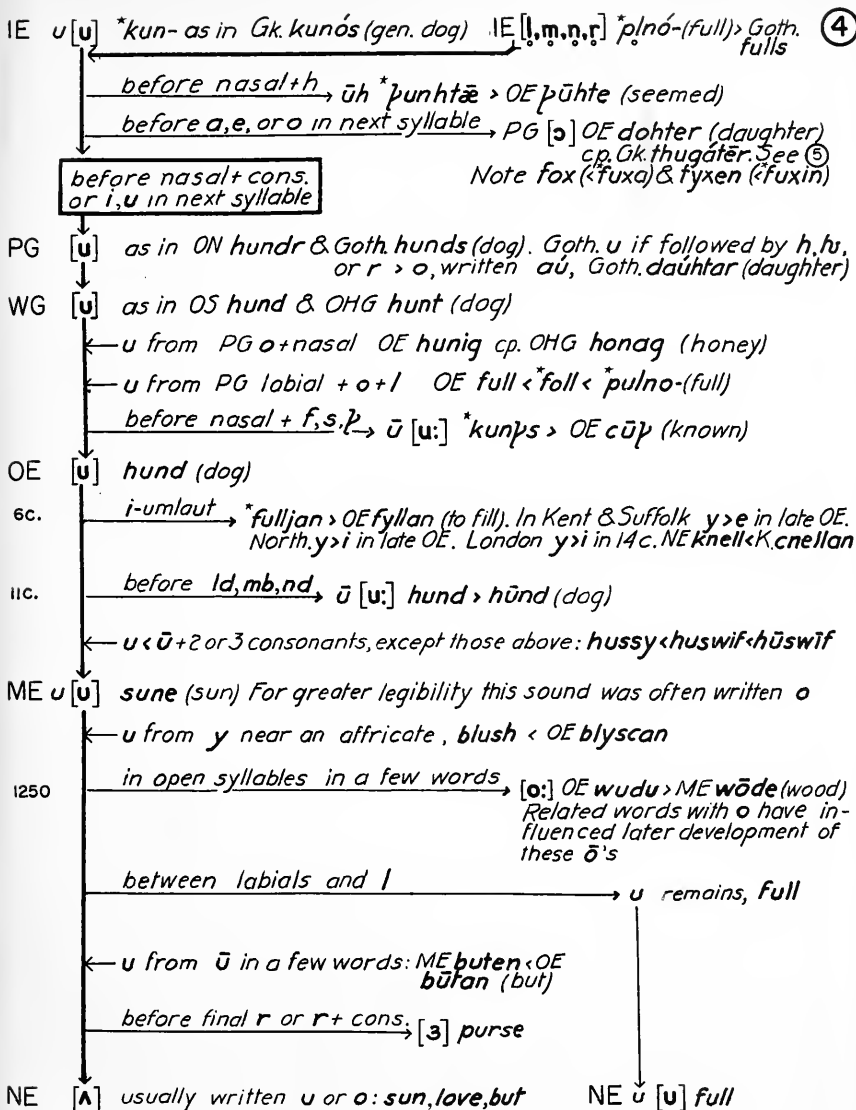 IE u [u] *kun- as in Gk. kunós (gen. dog) IE [l̥, m̥, n̥, r̥] *pl̥nó- (full) > Goth. fulls ④
before nasal + h → ūh *þunhtǣ > OE þūhte (seemed)
before a, e, or o in next syllable → PG [ɔ] OE dohter (daughter)
cp. Gk. thugátēr. See ⑤
before nasal + cons. or i, u in next syllable
Note fox (<*fuxa) & fyxen (<*fuxin)
PG [u] as in ON hundr & Goth. hunds (dog). Goth. u if followed by h, ƕ,
or r > o, written aú, Goth. daúhtar (daughter)
WG [u] as in OS hund & OHG hunt (dog)
← u from PG o + nasal OE hunig cp. OHG honag (honey)
← u from PG labial + o + l OE full < *foll < *pulno- (full)
before nasal + f, s, þ → ū [u:] *kunþs > OE cūþ (known)
OE [u] hund (dog)
6c. i-umlaut → *fulljan > OE fyllan (to fill). In Kent & Suffolk y > e in late OE.
North. y > i in late OE. London y > i in 14c. NE knell < K. cnellan
11c. before ld, mb, nd → ū [u:] hund > hūnd (dog)
← u < ū + 2 or 3 consonants, except those above: hussy < huswif < hūswīf
ME u [u] sune (sun) For greater legibility this sound was often written o
← u from y near an affricate, blush < OE blyscan
1250 in open syllables in a few words → [o:] OE wudu > ME wōde (wood)
Related words with o have in-
fluenced later development of
these ō's
between labials and l → u remains, full
← u from ū in a few words: ME buten < OE
būtan (but)
before final r or r + cons. → [ɜ] purse
NE [ʌ] usually written u or o: sun, love, but NE u [u] full